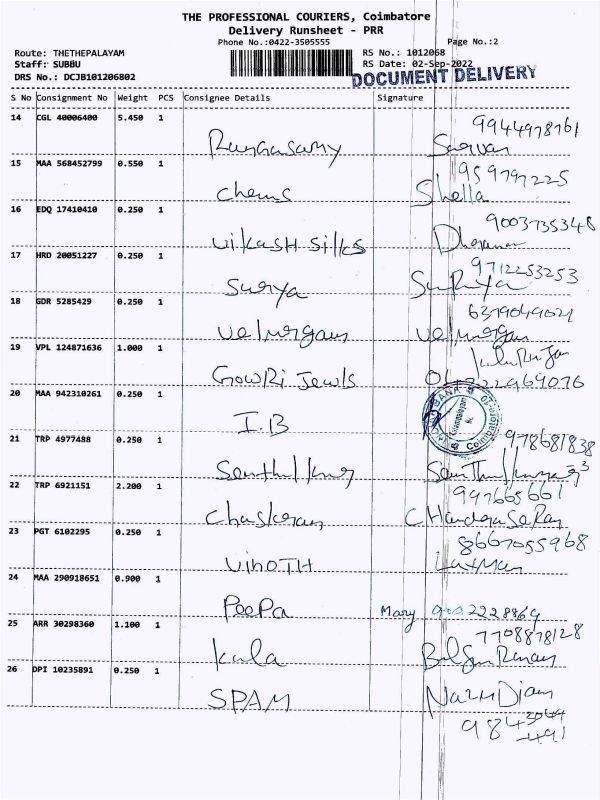 THE PROFESSIONAL COURIERS, Coimbatore
Delivery Runsheet - PRR
Phone No.:0422-3505555 Page No.:2
Route: THETHEPALAYAM RS No.: 1012068
Staff: SUBBU RS Date: 02-Sep-2022
DRS No.: DCJB101206802 DOCUMENT DELIVERY
S No Consignment No Weight PCS Consignee Details Signature
14 CGL 40006400 5.450 1
9944978761
Rungasamy
15 MAA 568452799 0.550 1
959797225
chems Shella
16 EDQ 17410410 0.250 1
9003735348
vikash silks
17 HRD 20051227 0.250 1
9712253253
Surya Suriya
18 GDR 5285429 0.250 1
6379049021
velmurgan velmurgan
19 VPL 124871636 1.000 1
Gowri Jewls
20 MAA 942310261 0.250 1
I.B Coimbatore
21 TRP 4977488 0.250 1
978681838
22 TRP 6921151 2.200 1
997665661
23 PGT 6102295 0.250 1
8667055968
VinoTH Laxman
24 MAA 290918651 0.900 1
PooPa Mary
25 ARR 30298360 1.100 1
7708878128
kala
26 DPI 10235891 0.250 1
SPAM